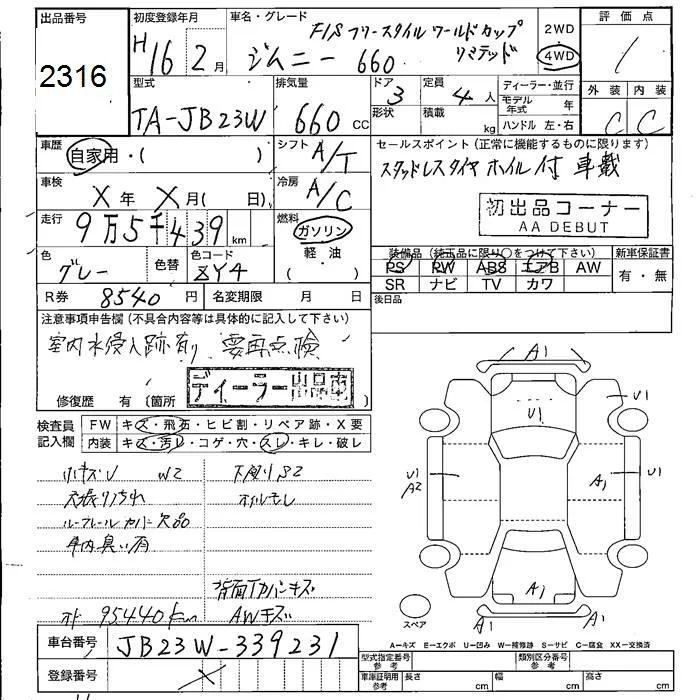 出品番号 初度登録年月 車名・グレード 2WD 評価点
2316 H16 2月 ジムニー 660 FISフリースタイル ワールドカップ リミテッド 4WD
型式 排気量 ドア 3 定員 4人 ディーラー・並行 外装 内装
TA-JB23W 660 CC 形状 積載 kg モデル年式 年 C C
ハンドル 左・右
車歴 自家用・( ) シフト A/T セールスポイント(正常に機能するものに限ります)
スタッドレスタイヤ ホイル付 車載
車検 X年 X月( 日) 冷房 A/C
初出品コーナー
AA DEBUT
走行 9万5千439 km 燃料 ガソリン
軽油
( )
装備品(純正品に限り○をつけて下さい) 新車保証書
色 グレー 色替 色コード ZY4
PS PW ABS エアB AW 有・無
SR ナビ TV カワ
R券 8540円 名変期限 月 日 後日品
注意事項申告欄(不具合内容等は具体的に記入して下さい)
室内水侵入跡有り 要再点検
修復歴 有(箇所 )
ディーラー出品車
検査員記入欄 FW キズ・飛石・ヒビ割・リペア跡・X要
内装 キズ・汚レ・コゲ・穴・スレ・キレ・破レ
小キズU W2 下廻りS2
天張り汚れ オイルモレ
ルーフレールカバー欠品
車内臭い有
背面Tカバーキズ
オド 95440km AWキズ
A1
U1 U1
U1 A2 A1 U1
A1
スペア A1 A1
A-キズ E-エクボ U-凹み W-補修跡 S-サビ C-腐食 XX-交換済
車台番号 JB23W-339231
型式指定番号 参考 類別区分番号 参考
登録番号 X
車庫証明用 参考 長さ cm 幅 cm 高さ cm